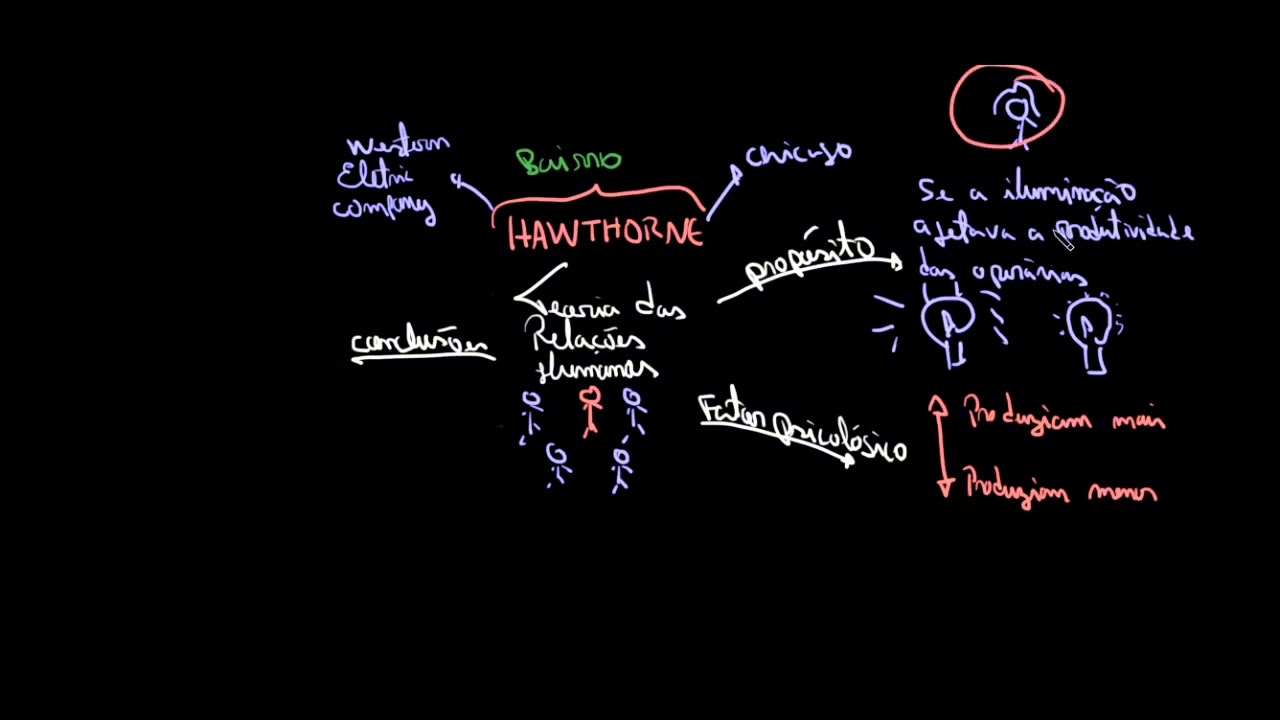 Western
Eletric
company
Bairro
chicago
HAWTHORNE
Se a iluminação
afetava a produtividade
das operárias
propósito
Teoria das
Relações
Humanas
conclusões
Fator psicológico
Produziam mais
Produziam menos